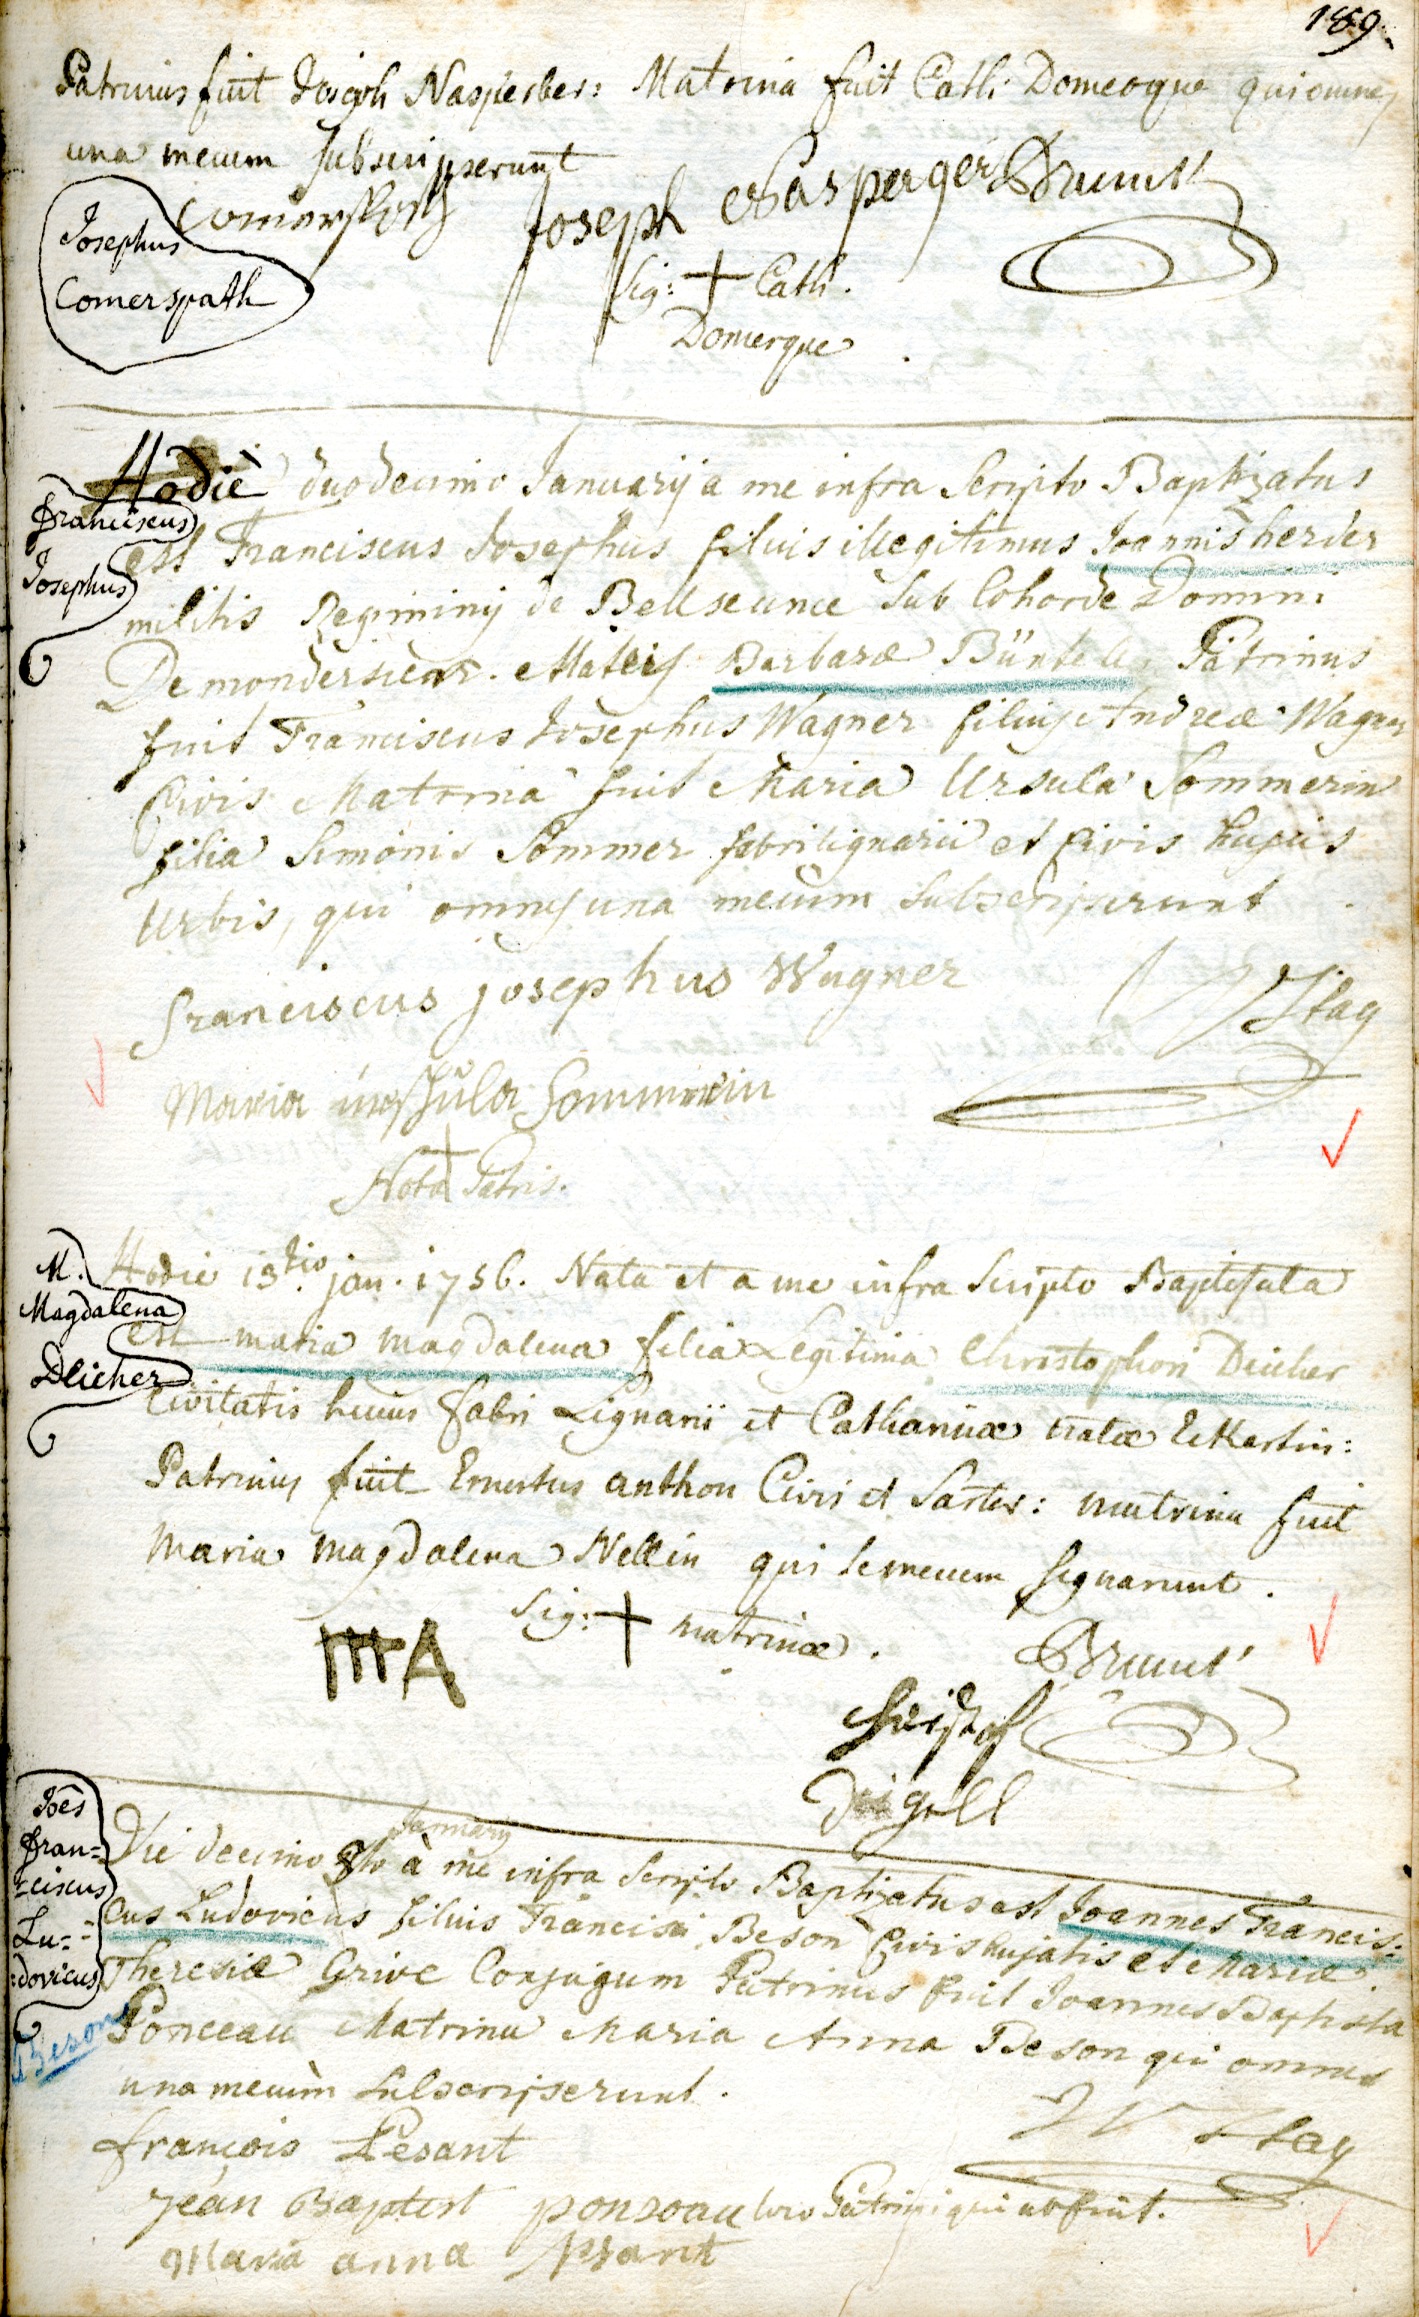 189.
Patrinus fuit Joseph Nasperber: Matrina fuit Cath: Domergue qui omnes
una mecum subscripserunt
Josephus
Comerspath
Joseph Nasperger
Sig: + Cath.
Domergue
Hodiè duodecimo Januarij a me infra Scripto Baptizatus
Franciscus
Josephus
est Franciscus Josephus filius illegitimus Joannis herder
militis Regiminis de Bellseunce sub Cohorde Domini
De mondersieur. Matris Barbaræ Büntele, Patrinus
fuit Franciscus Josephus Wagner filius Andreæ Wagner
Civis Matrina fuit Maria Ursula Sommerin
filia Simonis Sommer fabrilignarii et Civis hujus
Urbis, qui omnes una mecum subscripserunt
franciscus josephus Wagner
Maria urschula Sommerin
Nota + Patris.
M.
Magdalena
Deicher
Hodie 13tio jan. 1756. Nata et a me infra scripto Baptisata
est maria magdalena filia Legitima Christophori Deicher
Civitatis huius fabri Lignarii et Catharinæ natæ Ekkartin:
Patrinus fuit Ernestus anthon Civis et Sartor: matrina fuit
Maria Magdalena Nellin qui se mecum signarunt.
Sig: + matrinæ.
Joês
fran=
=ciscus
Lu=
=dovicus
Beson
January
Die decimo 8tô à me infra Scripto Baptizatus est Joannes Francis=
cus Ludovicus filius Francisci Beson Civis hujatis et Mariæ
Theresiæ Grive Conjugum Patrinus fuit Joannes Baptista
Ponceau Matrina Maria Anna Beson qui omnes
una mecùm subscripserunt.
françois Besant
jean Baptist ponsoau loco Patrini qui abfuit.
Maria anna